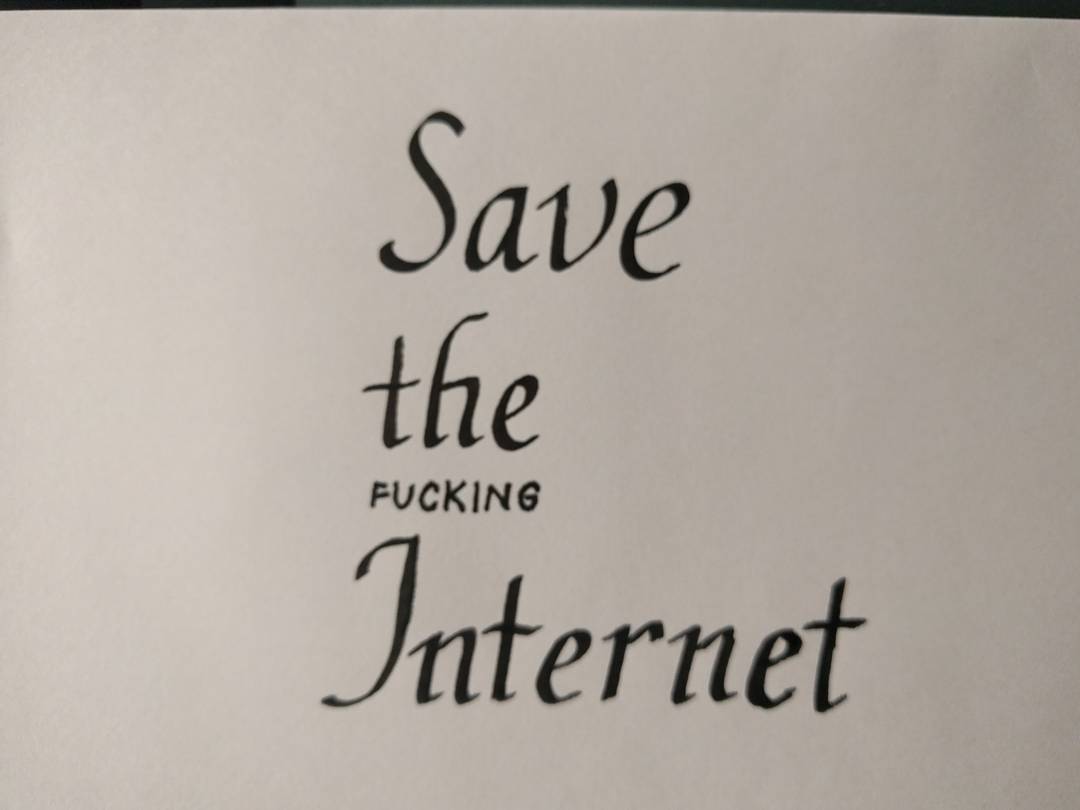 Save
the
FUCKING
Internet